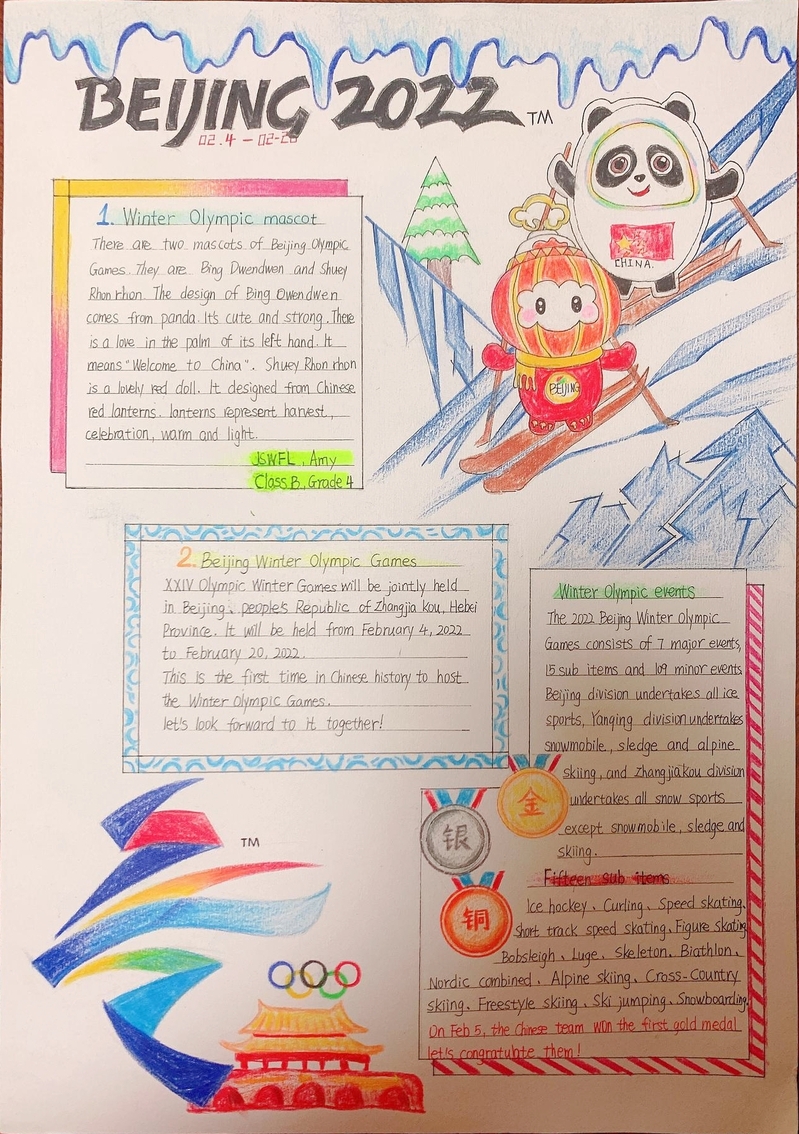 BEIJING 2022 TM
02.4 - 02-20
1. Winter Olympic mascot
There are two mascots of Beijing Olympic
Games. They are Bing Dwendwen and Shuey
Rhon rhon. The design of Bing Dwendwen
comes from panda. It's cute and strong. There
is a love in the palm of its left hand. It
means "Welcome to China". Shuey Rhon rhon
is a lovely red doll. It designed from Chinese
red lanterns. lanterns represent harvest,
celebration, warm and light.
JSWFL, Amy
Class B, Grade 4
CHINA.
BEIJING
2. Beijing Winter Olympic Games
XXIV Olympic Winter Games will be jointly held
in Beijing、people's Republic of Zhangjia kou, Hebei
Province. It will be held from February 4, 2022
to February 20, 2022.
This is the first time in Chinese history to host
the Winter Olympic Games.
let's look forward to it together!
Winter Olympic events
The 2022 Beijing Winter Olympic
Games consists of 7 major events,
15 sub items and 109 minor events.
Beijing division undertakes all ice
sports, Yanqing division undertakes
snowmobile, sledge and alpine
skiing, and Zhangjiakou division
undertakes all snow sports
except snowmobile, sledge and
skiing.
Fifteen sub items
Ice hockey、Curling、Speed skating、
Short track speed skating、Figure skating
Bobsleigh、Luge、Skeleton、Biathlon、
Nordic combined、Alpine skiing、Cross-Country
skiing、Freestyle skiing、Ski jumping、Snowboarding.
On Feb 5, the Chinese team won the first gold medal
let's congratulate them!
金
银
铜
TM